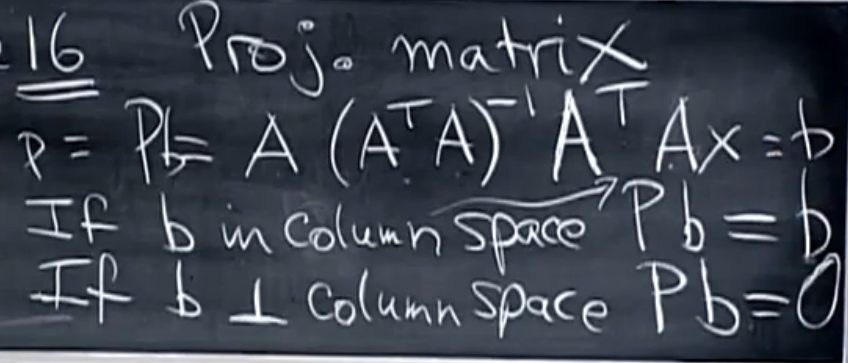 16 Proj. matrix
p = Pb = A (AᵀA)⁻¹ Aᵀ Ax = b
If b in column space Pb = b
If b ⊥ column space Pb = 0